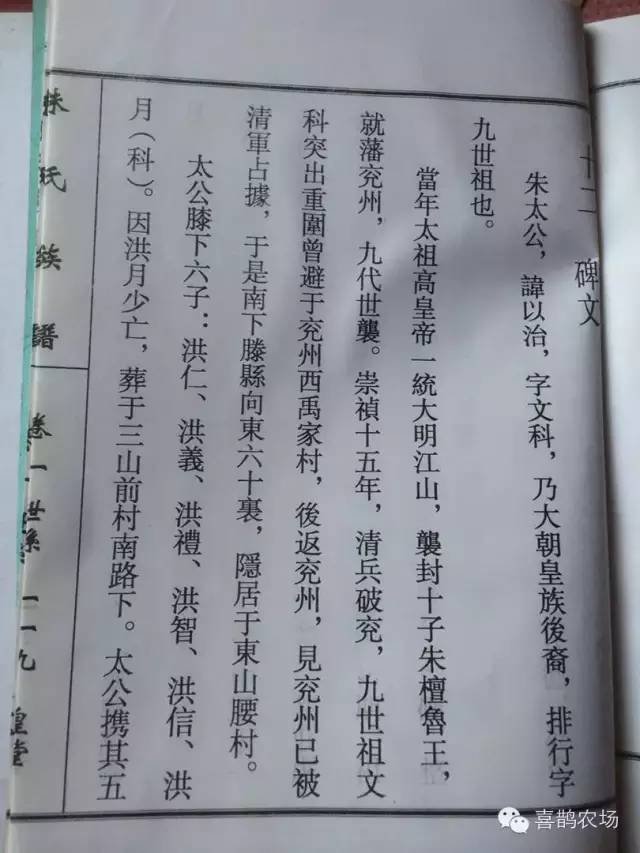 十二 碑文
朱太公，諱以治，字文科，乃大朝皇族後裔，排行字
九世祖也。
當年太祖高皇帝一統大明江山，襲封十子朱檀魯王，
就藩兖州，九代世襲。崇禎十五年，清兵破兖，九世祖文
科突出重圍曾避于兖州西禹家村，後返兖州，見兖州已被
清軍占據，于是南下滕縣向東六十裏，隱居于東山腰村。
太公膝下六子：洪仁、洪義、洪禮、洪智、洪信、洪
月（科）。因洪月少亡，葬于三山前村南路下。太公携其五
朱氏族譜
卷一 世系 一一九
喜鹊农场